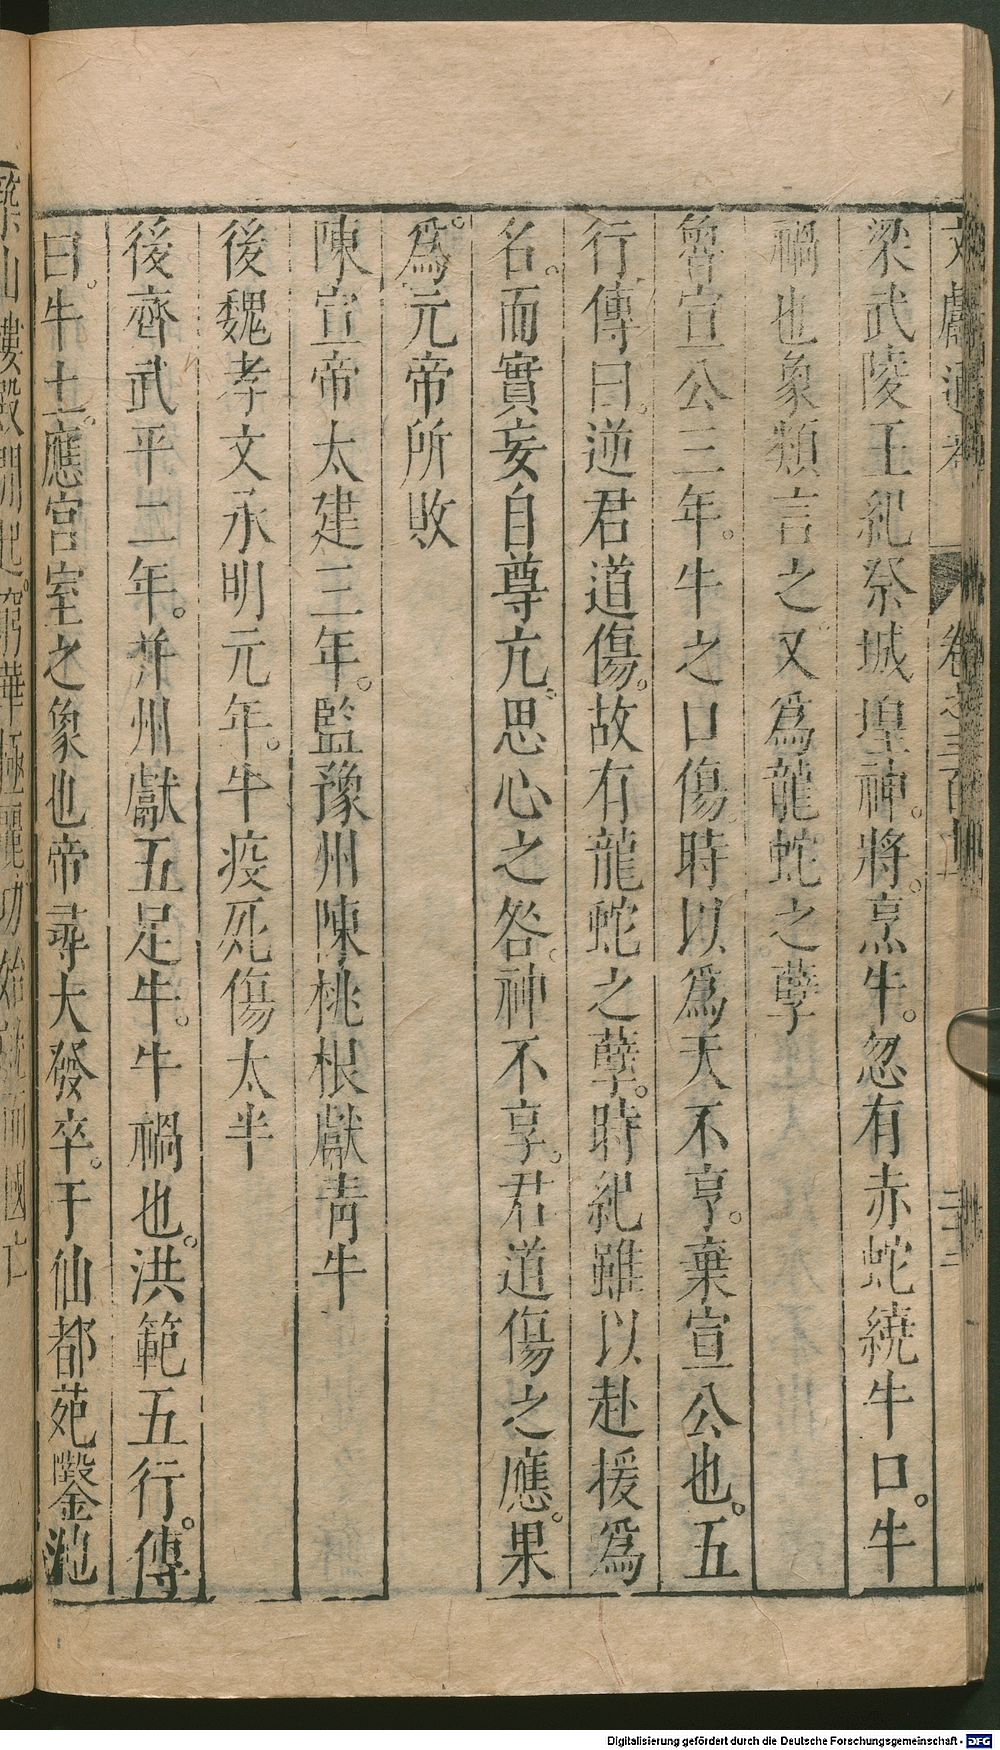 文獻通考 卷之三百
梁武陵王紀祭城隍神。將。烹牛。忽有赤蛇繞牛口。牛
禍也象類言之又爲龍蛇之孽
魯宣公三年。牛之口傷。時以爲天不亨。棄宣公也。五
行傳曰。逆君道傷。故有龍蛇之孽。時紀雖以赴援爲
名。而實妄自尊亢。思心之咎。神不享。君道傷之應。果
爲。元帝所敗
陳宣帝太建三年。監豫州陳桃根獻青牛
後魏孝文承明元年。牛疫死傷太半
後齊武平二年。并州獻五足牛。牛禍也。洪範五行。傳
曰。牛土。應宮室之象也帝尋大發卒。于仙都苑鑿池
築山樓殿間起。窮華極麗。功始就而國亡
Digitalisierung gefördert durch die Deutsche Forschungsgemeinschaft - DFG